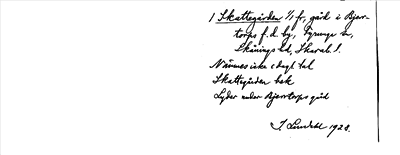 1 Skattegården 1/1 fr, gård i Bjer-
torps f.d. by, Tyrunge sn,
Skånings hd, Skarab. l.
Nämnes icke i dagl. tal
Skattegården bek
Lyder under Bjertorps gård
J. Lundahl 1928.